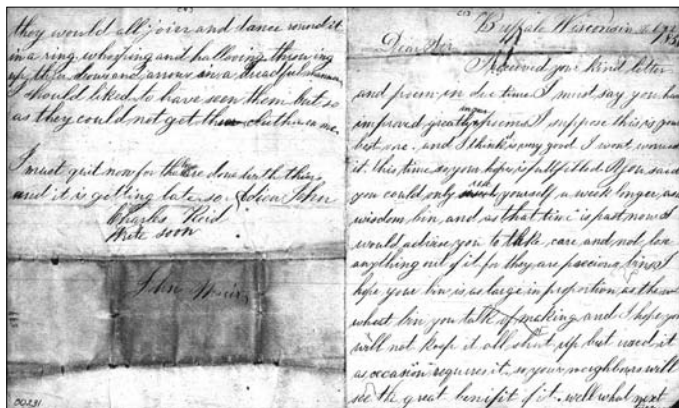 they would all join and dance round it
in a ring whooping and hallooing throwing
up their bows and arrows in a dreadful manner
I should liked to have seen them but so
as they could not get them
I must quit now for the are done with
and it is getting late so Adieu John
Charles Reid
Write soon
John Muir
00231
Buffalo Wisconsin
Dear Sir
I received your kind letter
and poem in due time I must say you have
improved greatly in your poems I suppose this is your
best one. and I think is very good I wont
it. this time so your hope is fulfilled A you said
you could only yourself a week longer, as
wisdom bin, and as that time is past now I
would advise you to take care and not lose
anything out of it for they are precious bins I
hope your bin is as large in proportion as the
wheat bin you talk of making and I hope you
will not keep it all shut up but used it
as occasion requires it, so your neighbours will
see the great benifit of it. well what next